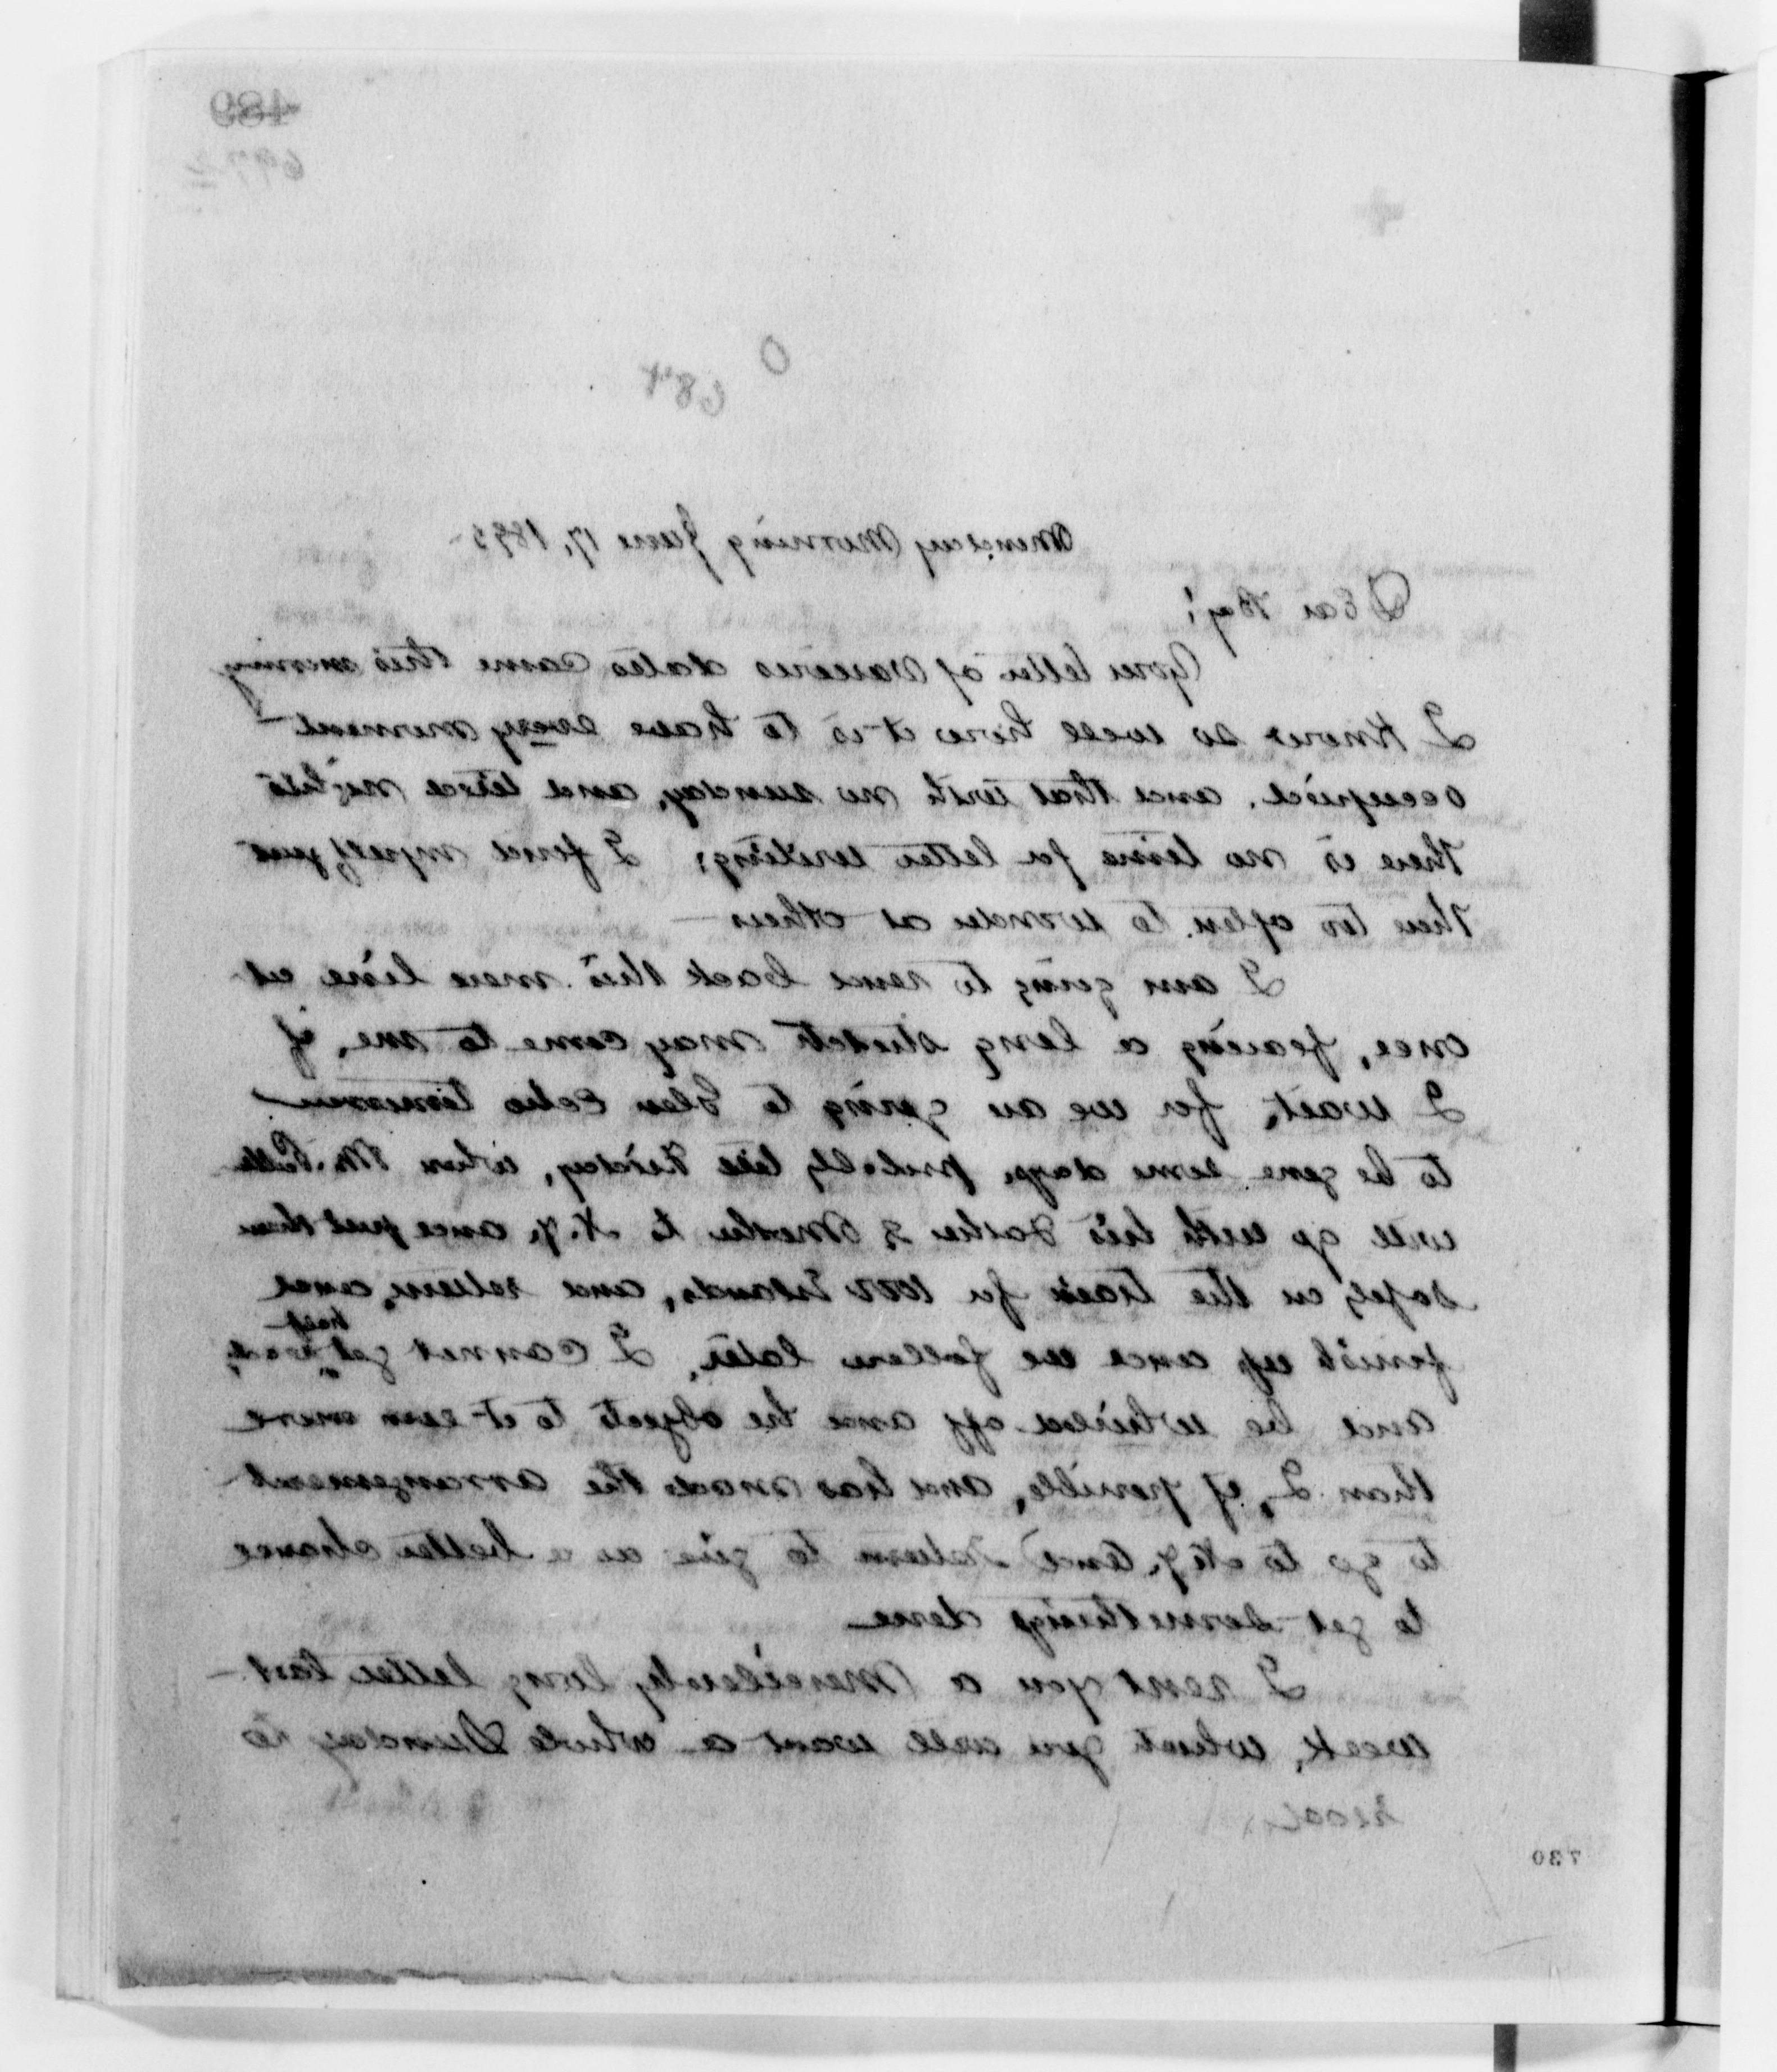 489
697 2
0
684
Monday Morning June 17, 1895
Dear Boy!
Your letter of various dates came this morning
I know so well how it is to have every moment
occupied. and that with no sunday, and tired nights
there is no time for letter writing; I find myself just
there too often to wonder at others
I am going to send back this mere line at
once, fearing a long stretch may come to me, if
I wait, for we are going to Glen Echo tomorrow
to be gone some days, probably till Friday, when Mr. Pullman
will go with his Father & Mother to N.Y. and put them
safely on the train for 1000 Islands, and return, and
finish up and we follow later, I cannot get half ready
and be whirled off and he objects to it even more
than I, if possible, and has made the arrangement
to go to N.Y. and return to give us a better chance
to get somethings done
I sent you a mercilessly long letter last
week, which you will want a whole Sunday to
read.
730